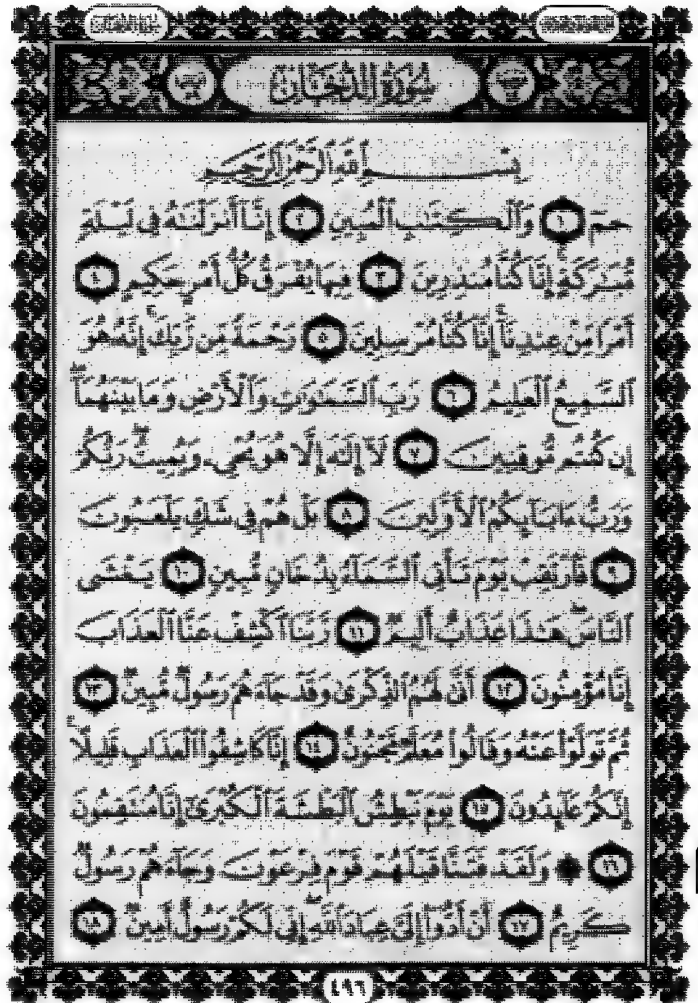 سُورَةُ الدُّخَانِ
بِسْمِ اللَّهِ الرَّحْمَٰنِ الرَّحِيمِ
حمٓ ١ وَٱلْكِتَٰبِ ٱلْمُبِينِ ٢ إِنَّآ أَنزَلْنَٰهُ فِى لَيْلَةٍ
مُّبَٰرَكَةٍ إِنَّا كُنَّا مُنذِرِينَ ٣ فِيهَا يُفْرَقُ كُلُّ أَمْرٍ حَكِيمٍ ٤
أَمْرًا مِّنْ عِندِنَآ إِنَّا كُنَّا مُرْسِلِينَ ٥ رَحْمَةً مِّن رَّبِّكَ إِنَّهُۥ هُوَ
ٱلسَّمِيعُ ٱلْعَلِيمُ ٦ رَبِّ ٱلسَّمَٰوَٰتِ وَٱلْأَرْضِ وَمَا بَيْنَهُمَآ
إِن كُنتُم مُّوقِنِينَ ٧ لَآ إِلَٰهَ إِلَّا هُوَ يُحْىِۦ وَيُمِيتُ رَبُّكُمْ
وَرَبُّ ءَابَآئِكُمُ ٱلْأَوَّلِينَ ٨ بَلْ هُمْ فِى شَكٍّ يَلْعَبُونَ
٩ فَٱرْتَقِبْ يَوْمَ تَأْتِى ٱلسَّمَآءُ بِدُخَانٍ مُّبِينٍ ١٠ يَغْشَى
ٱلنَّاسَ هَٰذَا عَذَابٌ أَلِيمٌ ١١ رَّبَّنَا ٱكْشِفْ عَنَّا ٱلْعَذَابَ
إِنَّا مُؤْمِنُونَ ١٢ أَنَّىٰ لَهُمُ ٱلذِّكْرَىٰ وَقَدْ جَآءَهُمْ رَسُولٌ مُّبِينٌ ١٣
ثُمَّ تَوَلَّوْا۟ عَنْهُ وَقَالُوا۟ مُعَلَّمٌ مَّجْنُونٌ ١٤ إِنَّا كَاشِفُوا۟ ٱلْعَذَابِ قَلِيلًا
إِنَّكُمْ عَآئِدُونَ ١٥ يَوْمَ نَبْطِشُ ٱلْبَطْشَةَ ٱلْكُبْرَىٰٓ إِنَّا مُنتَقِمُونَ
١٦ ۞ وَلَقَدْ فَتَنَّا قَبْلَهُمْ قَوْمَ فِرْعَوْنَ وَجَآءَهُمْ رَسُولٌ
كَرِيمٌ ١٧ أَنْ أَدُّوٓا۟ إِلَىَّ عِبَادَ ٱللَّهِ إِنِّى لَكُمْ رَسُولٌ أَمِينٌ ١٨
٤٩٦